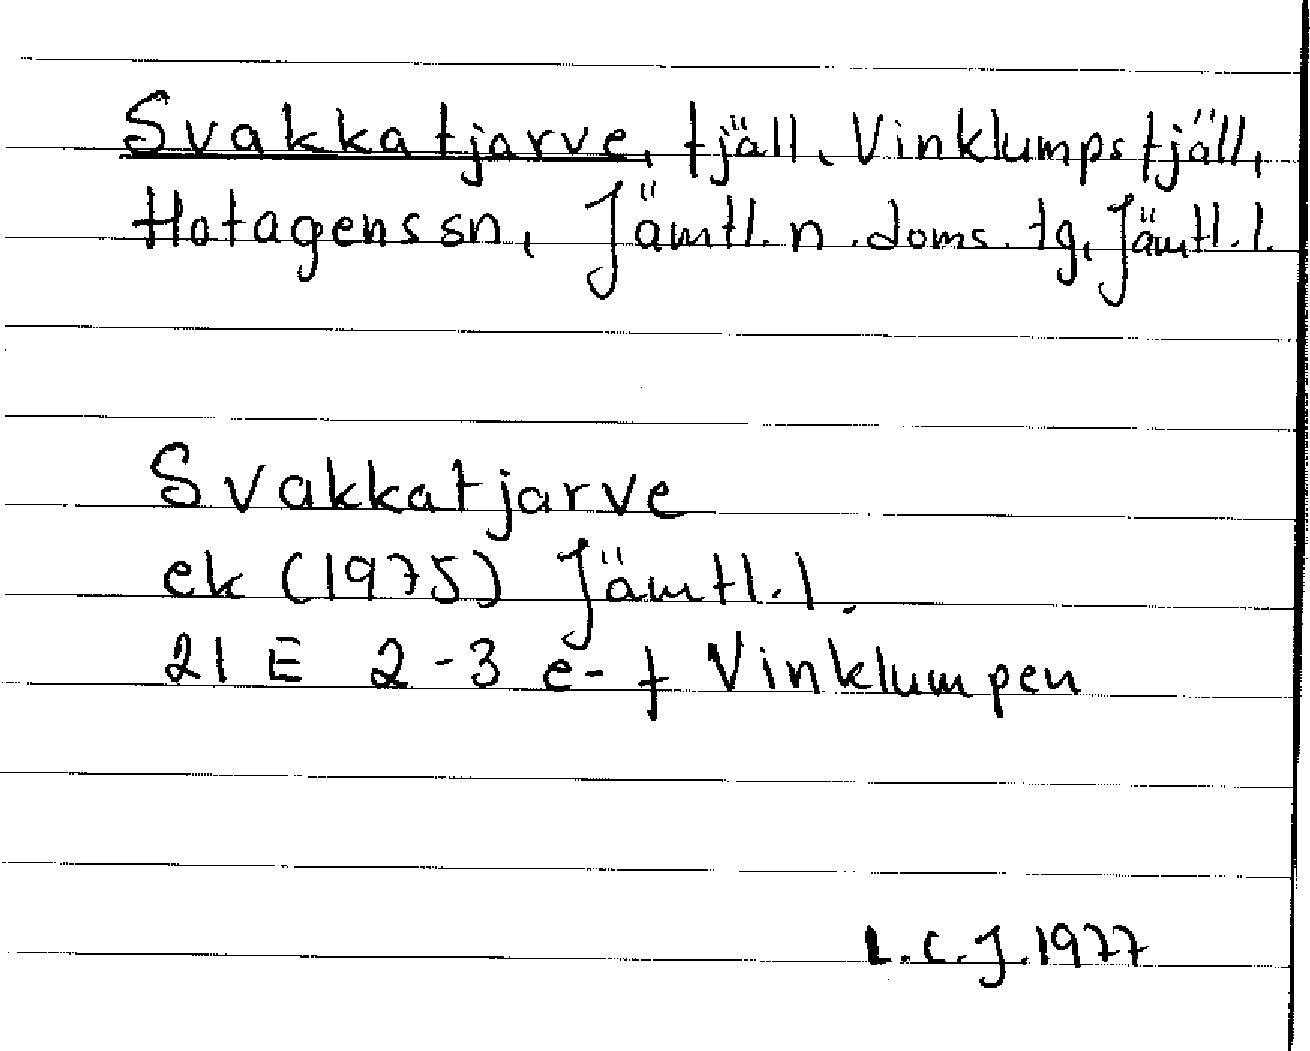 Svakkatjarve, fjäll, Vinklumpsfjäll,
Hotagens sn, Jämtl. n. doms. tg, Jämtl. l.
Svakkatjarve
ek (1975) Jämtl. l.
21 E 2-3 e-f Vinklumpen
L.C.J. 1977